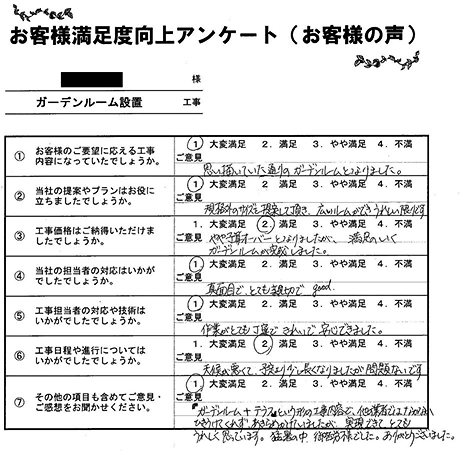 お客様満足度向上アンケート（お客様の声）
様
ガーデンルーム設置 工事
① お客様のご要望に応える工事内容になっていたでしょうか。
1. 大変満足 2. 満足 3. やや満足 4. 不満
ご意見
思い描いていた通りのガーデンルームとなりました。
② 当社の提案やプランはお役に立ちましたでしょうか。
1. 大変満足 2. 満足 3. やや満足 4. 不満
ご意見
規格外のサイズを提案して頂き、広いルームができうれしい限りです
③ 工事価格はご納得いただけましたでしょうか。
1. 大変満足 2. 満足 3. やや満足 4. 不満
ご意見
やや予算オーバーとなりましたが、満足のいく
ガーデンルームが完成しました。
④ 当社の担当者の対応はいかがでしたでしょうか。
1. 大変満足 2. 満足 3. やや満足 4. 不満
ご意見
真面目で、とても親切で good.
⑤ 工事担当者の対応や技術はいかがでしたでしょうか。
1. 大変満足 2. 満足 3. やや満足 4. 不満
ご意見
作業がとても丁寧できれいで安心できました。
⑥ 工事日程や進行についてはいかがでしたでしょうか。
1. 大変満足 2. 満足 3. やや満足 4. 不満
ご意見
天候が悪くて、予定より少し長くなりましたが問題ないです
⑦ その他の項目も含めてご意見・ご感想をお聞かせください。
1. 大変満足 2. 満足 3. やや満足 4. 不満
ご意見
ガーデンルーム＋テラスという形の工事内容で、他業者ではなかなか
ひきうけてくれず、あきらめかけていましたが、実現できて、とても
うれしく思っています。猛暑の中、御苦労様でした。ありがとうございました。